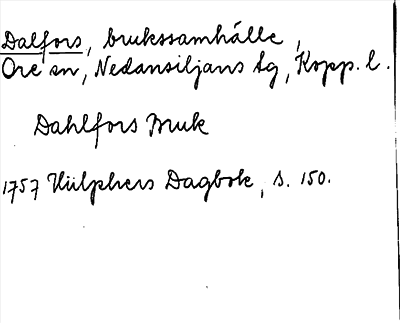 Dalfors, brukssamhälle,
Ore sn, Nedansiljans tg, Kopp. l.
Dahlfors Bruk
1757 Hülphers Dagbok, s. 150.